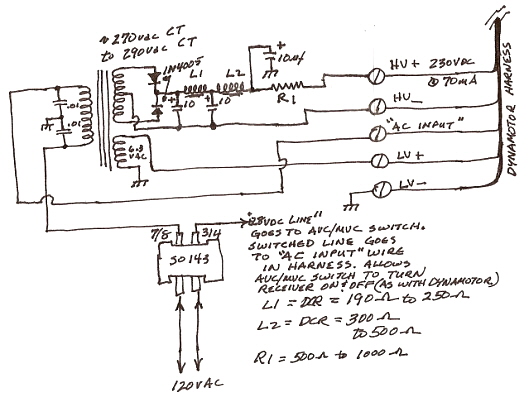 ≈ 270VAC CT
to 290VAC CT
1N4005
L1
L2
+
10µf
HV+ 230VDC
@ 70MA
R1
HV-
"AC INPUT"
LV+
LV-
DYNAMOTOR HARNESS
.01
.01
+
10
+
10
6.3
VAC
7/8
3/4
SO143
120VAC
"28VDC LINE"
GOES TO AVC/MVC SWITCH.
SWITCHED LINE GOES
TO "AC INPUT" WIRE
IN HARNESS. ALLOWS
AVC/MVC SWITCH TO TURN
RECEIVER ON & OFF (AS WITH DYNAMOTOR)
L1 = DCR = 190Ω to 250Ω
L2 = DCR = 300Ω
to 500Ω
R1 = 500Ω to 1000Ω